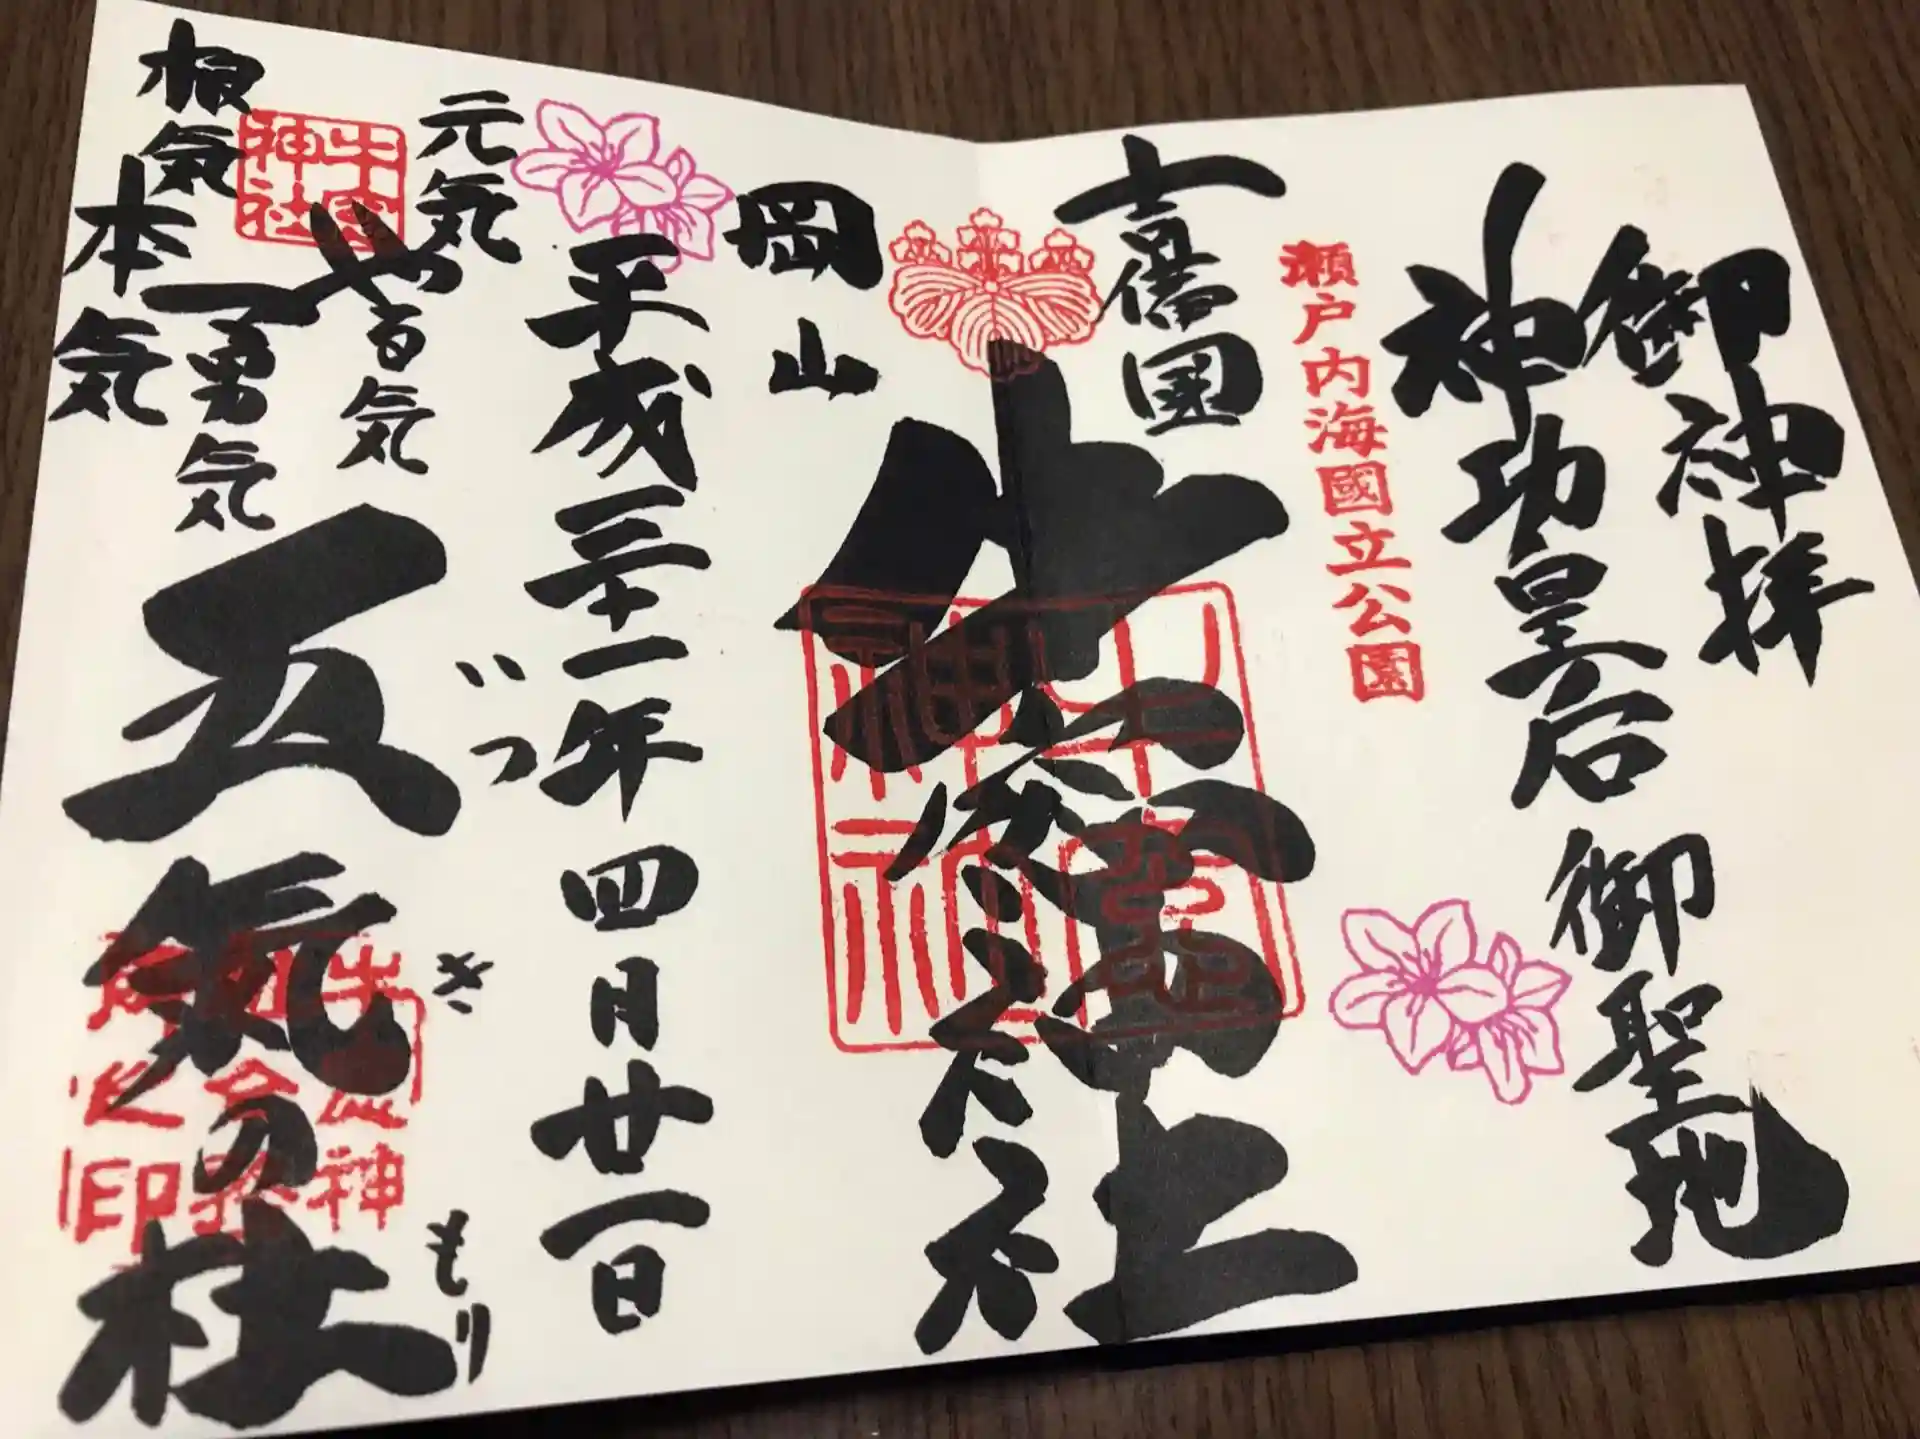 御神拝
神功皇后御聖地
瀬戸内海國立公園
吉備国
牛窓神社
牛窓神社
岡山
平成三十一年四月廿一日
元気
やる気
勇気
本気
根気
牛窓神社
五気の杜
いつ
き
もり